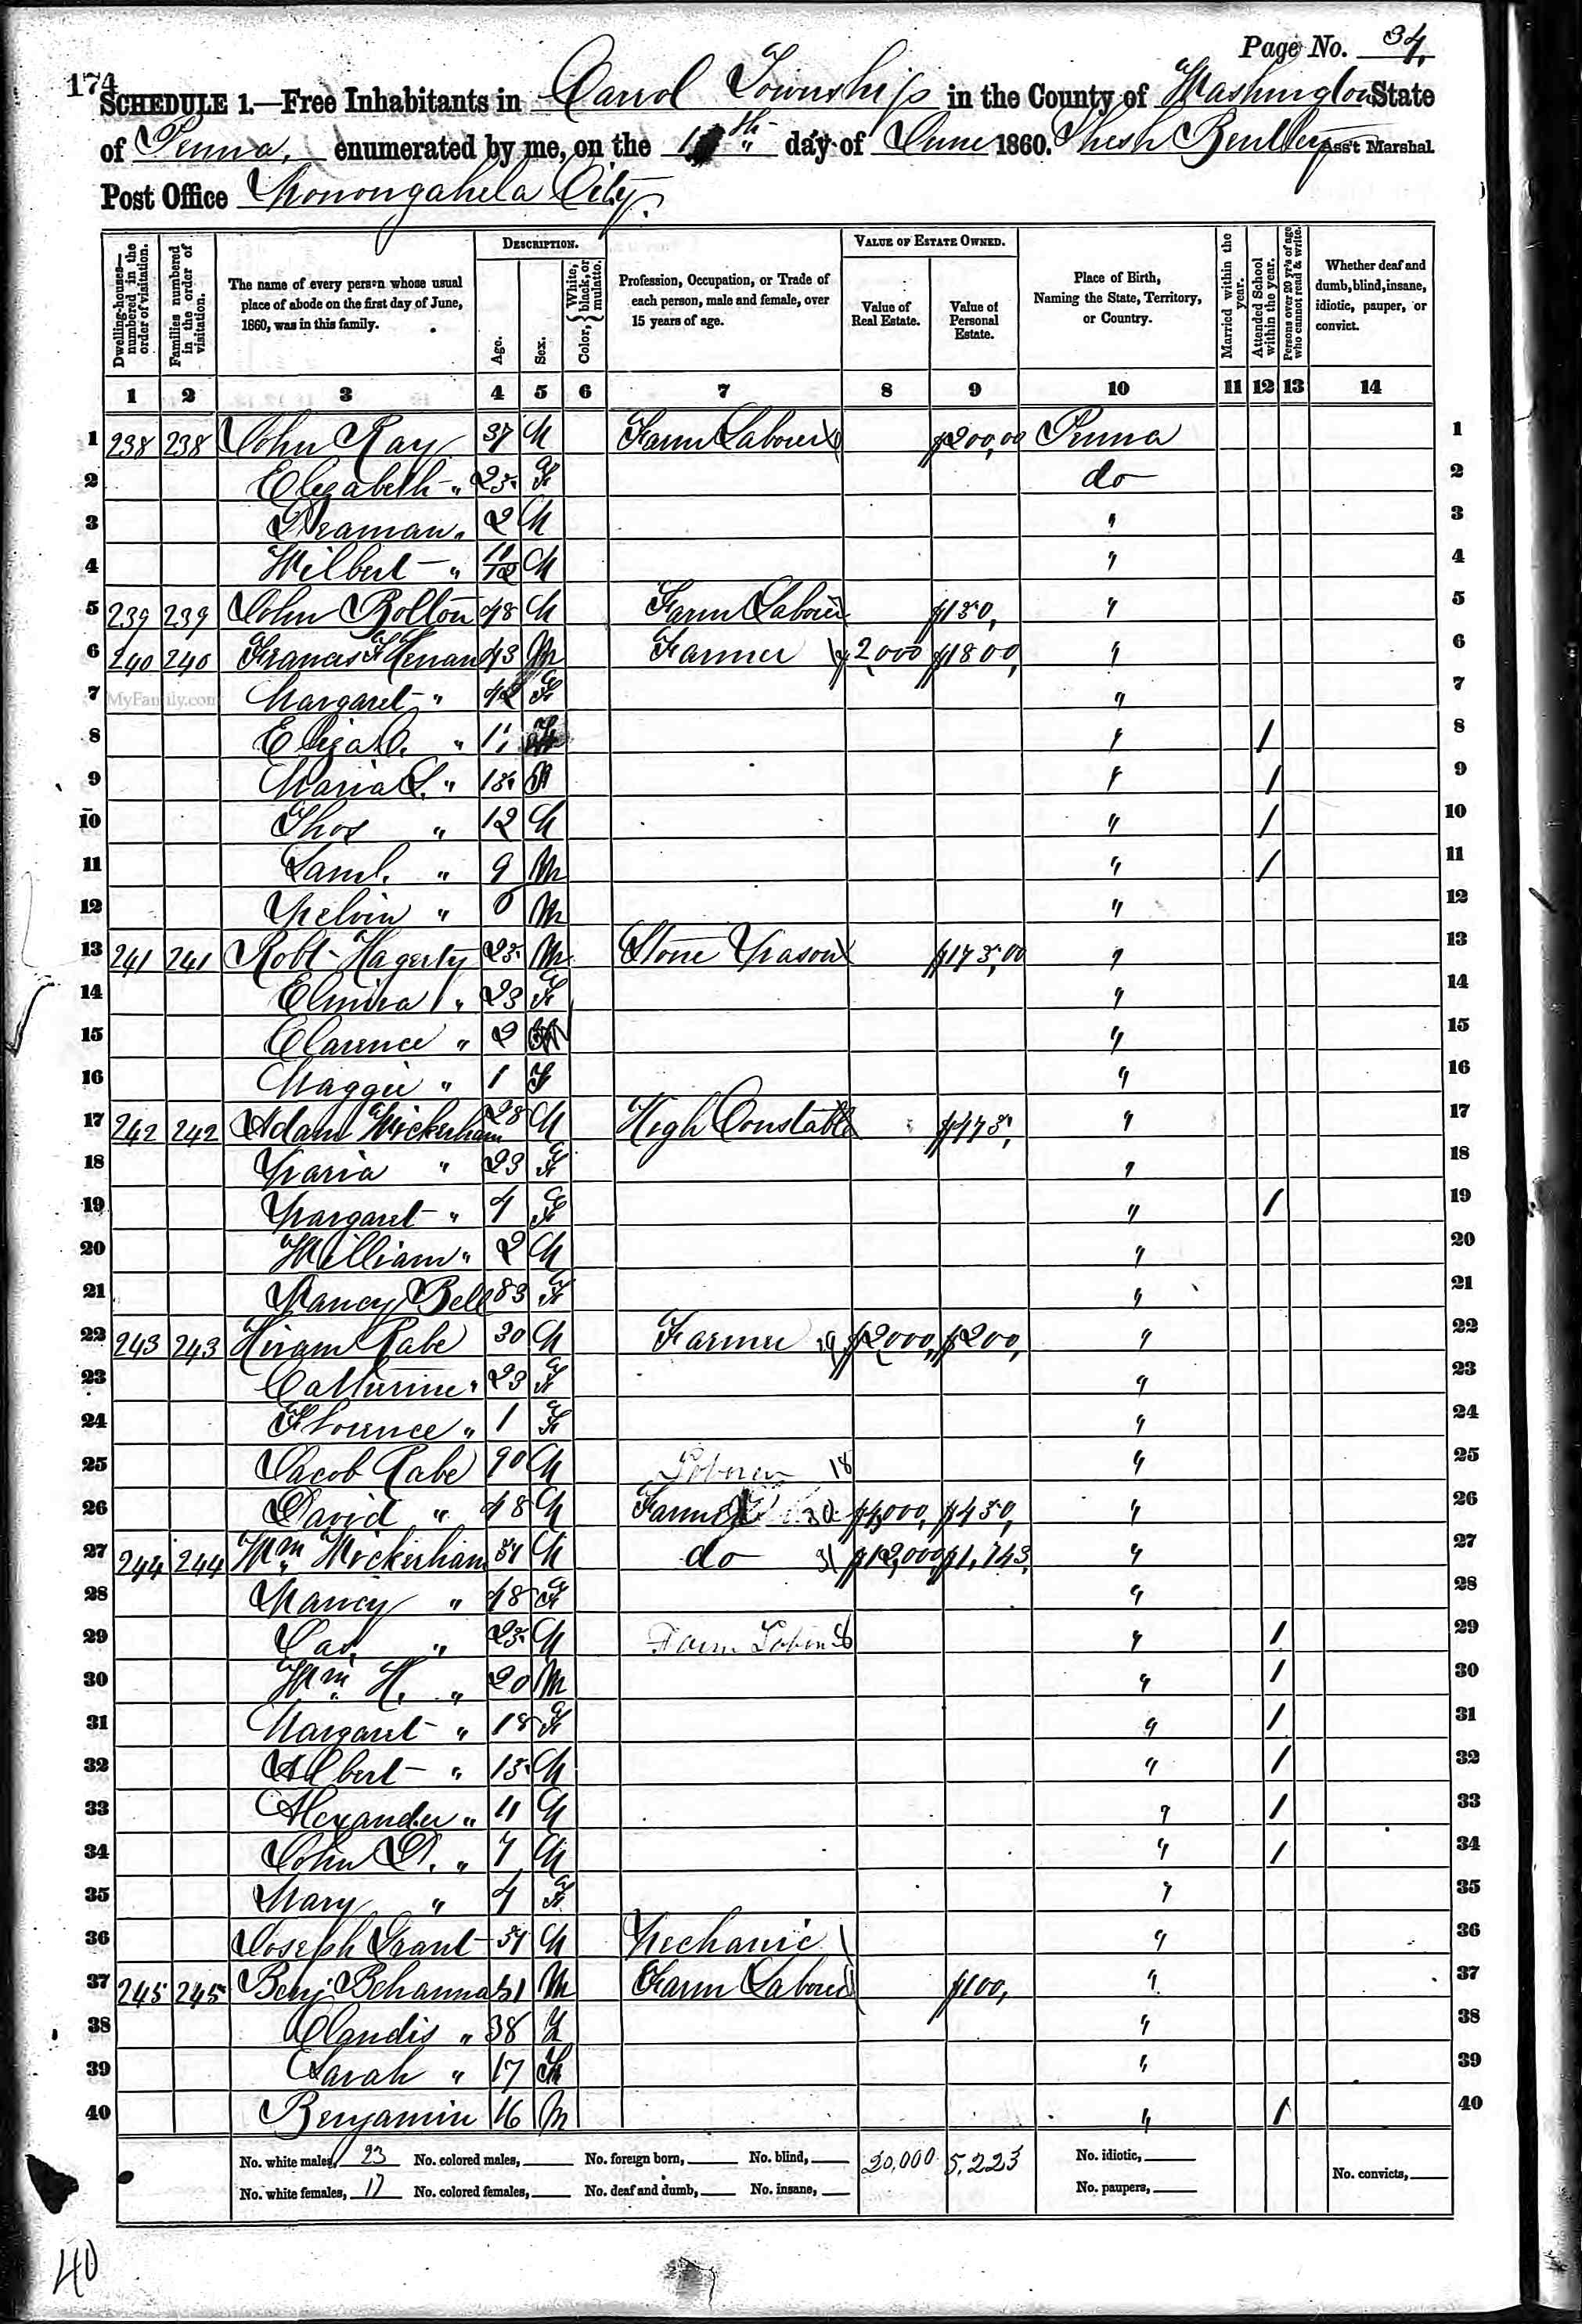 Page No. 34,
174
SCHEDULE 1.—Free Inhabitants in Carrol Township in the County of Washington State
of Penna, enumerated by me, on the th day of June 1860. Thesh Bentley Ass't Marshal.
Post Office Monongahela City.
Dwelling-houses—numbered in the order of visitation.
Families numbered in the order of visitation.
The name of every person whose usual place of abode on the first day of June, 1860, was in this family.
DESCRIPTION.
Age.
Sex.
Color, {White, black, or mulatto.
Profession, Occupation, or Trade of each person, male and female, over 15 years of age.
VALUE OF ESTATE OWNED.
Value of Real Estate.
Value of Personal Estate.
Place of Birth, Naming the State, Territory, or Country.
Married within the year.
Attended School within the year.
Persons over 20 y'rs of age who cannot read & write.
Whether deaf and dumb, blind, insane, idiotic, pauper, or convict.
1 2 3 4 5 6 7 8 9 10 11 12 13 14
1 238 238 John Ray 37 M Farm Labourer $200,00 Penna 1
2 Elizabeth " 25 F do 2
3 Deaman " 2 M " 3
4 Wilbert " 11/12 M " 4
5 239 239 John Bolton 48 M Farm Labourer $150, " 5
6 240 240 Francis 43 M Farmer $2,000 $1800, " 6
7 MyFamily.com Margaret " 42 F " 7
8 Eliza " F " / 8
9 Maria L. " " / 9
10 Thos " 12 M " / 10
11 Saml. " 9 M " / 11
12 Melvin " 6 M " 12
13 241 241 Robt Hagerty 25 M Stone Mason $175,00 " 13
14 Elmira " 23 F " 14
15 Clarence " 2 M " 15
16 Maggie " 1 F " 16
17 242 242 Adam Wickerham 28 M High Constable $475, " 17
18 Maria " 23 F " 18
19 Margaret " 4 F " / 19
20 William " 2 M " 20
21 Nancy Bell 83 F " 21
22 243 243 Hiram Rabe 30 M Farmer $2000, $200, " 22
23 Catherine " 23 F " 23
24 Florence " 1 F " 24
25 Jacob Rabe 90 M Laborer 18 " 25
26 David " 48 M Farmer $4,000, $450, " 26
27 244 244 Wm Wickerham 51 M do 31 $12,000 $1,743, " 27
28 Nancy " 48 F " 28
29 Jas. " 25 M Farm Labor " / 29
30 Wm H. " 20 M " / 30
31 Margaret " 18 F " / 31
32 Albert " 15 M " / 32
33 Alexander " 11 M " / 33
34 John D. " 7 M " / 34
35 Mary " 4 F " 35
36 Joseph Grant 54 M Mechanic " 36
37 245 245 Benj Behanna 51 M Farm Labourer $100, " 37
38 Clandis " 38 F " 38
39 Sarah " 17 F " 39
40 Benjamin 16 M " / 40
No. white males, 23 No. colored males, No. foreign born, No. blind, 20,000 5,223 No. idiotic,
No. white females, 17 No. colored females, No. deaf and dumb, No. insane, No. paupers, No. convicts,
40